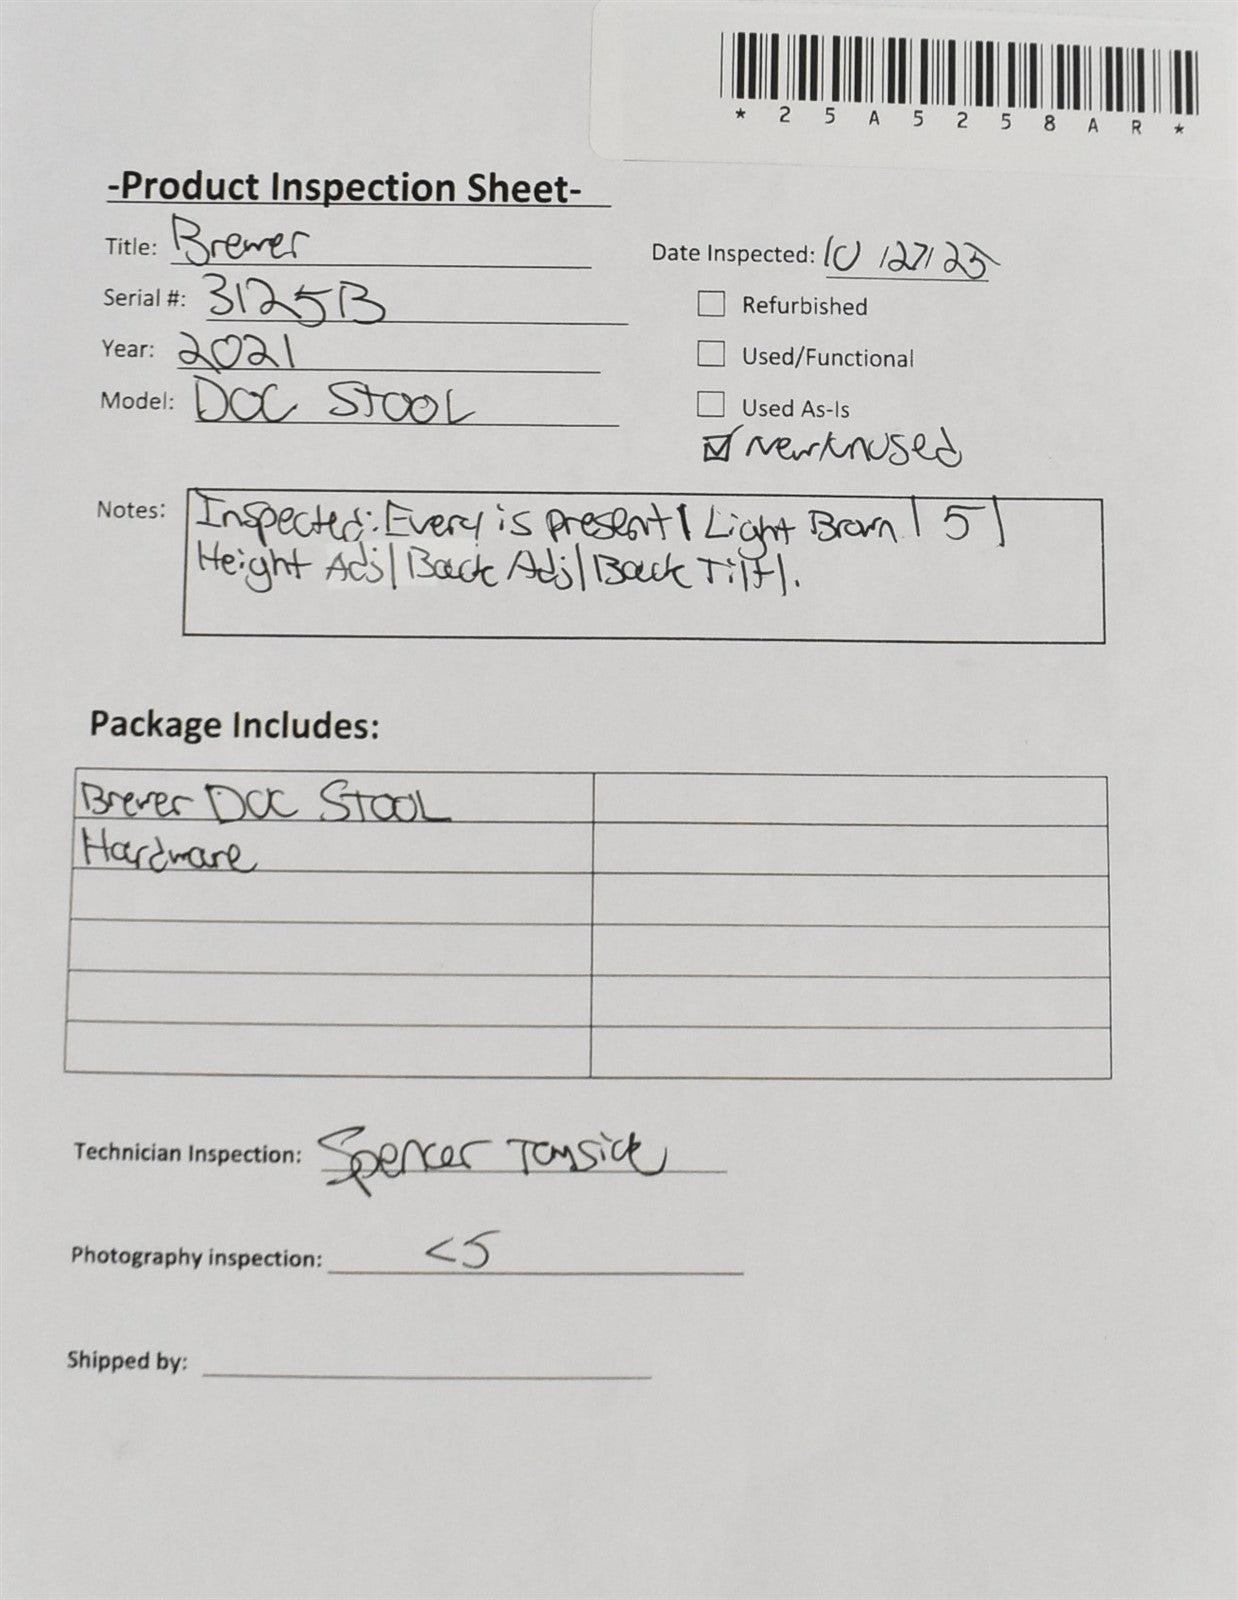 *25A5258AR*
-Product Inspection Sheet-
Title: Brewer
Date Inspected: 10/27/25
Serial #: 3125B
Refurbished
Year: 2021
Used/Functional
Model: DOC STOOL
Used As-Is
New/Unused
Notes: Inspected: Every is present | Light Brown | 5 |
Height Adj | Back Adj | Back Tilt |.
Package Includes:
Brewer DOC STOOL
Hardware
Technician Inspection: Spencer
Photography inspection: <5
Shipped by: